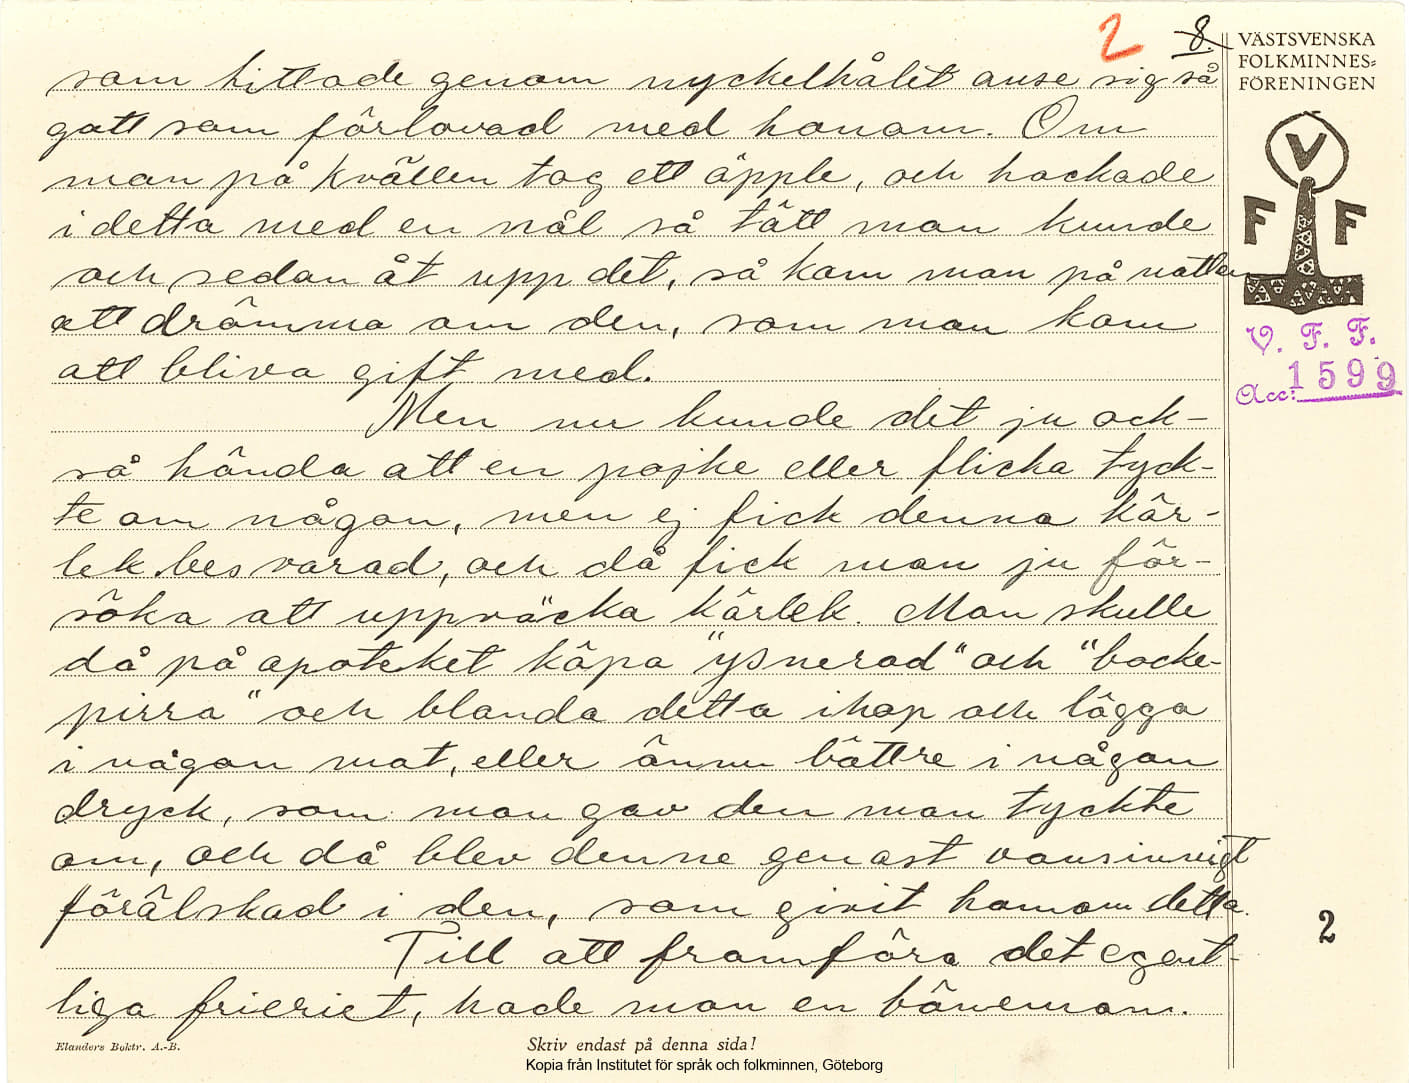 2 8.
VÄSTSVENSKA
FOLKMINNES=
FÖRENINGEN
V
F F
V. F. F.
Acc: 1599
som tittade genom nyckelhålet anse sig så
gott som förlovad med honom. Om
man på kvällen tog ett äpple, och hackade
i detta med en nål så tätt man kunde
och sedan åt upp det, så kom man på natten
att drömma om den, som man kom
att bliva gift med.
Men nu kunde det ju ock-
så hända att en pojke eller flicka tyck-
te om någon, men ej fick denna kär-
lek besvarad, och då fick man ju för-
söka att uppväcka kärlek. Man skulle
då på apoteket köpa "ysnerad" och "bocke-
pirra" och blanda detta ihop och lägga
i någon mat, eller ännu bättre i någon
dryck, som man gav den man tyckte
om, och då blev denne genast vansinnigt
förälskad i den, som givit honom detta.
Till att framföra det egent-
liga frieriet, hade man en böneman.
2
Elanders Boktr. A.-B.
Skriv endast på denna sida!
Kopia från Institutet för språk och folkminnen, Göteborg